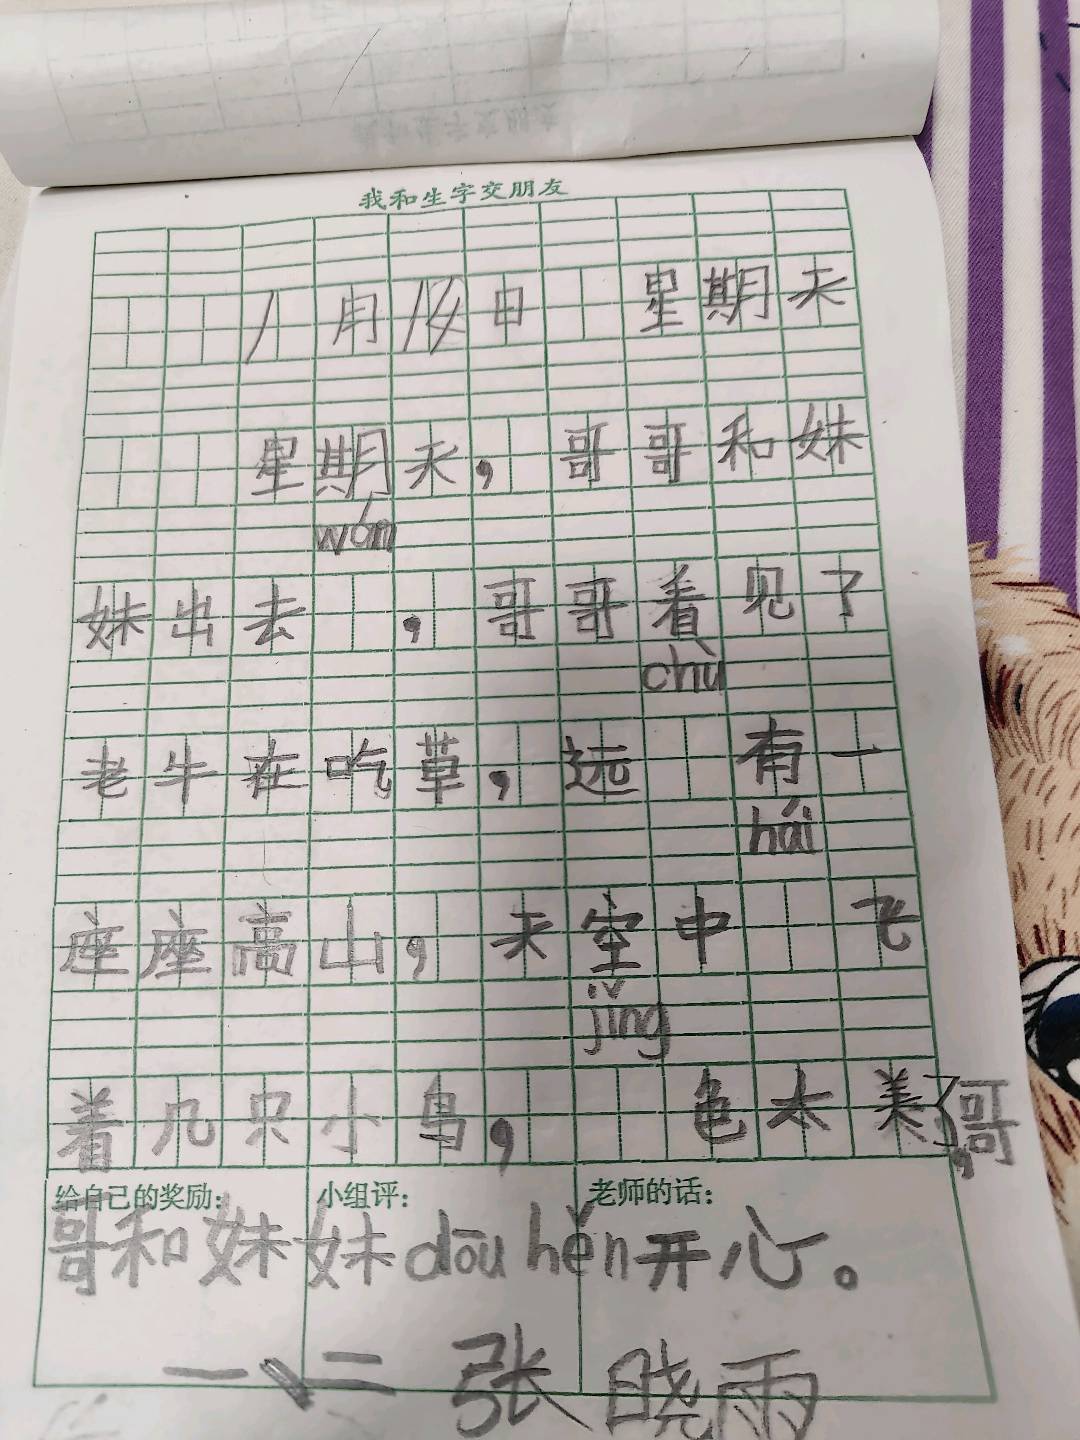 我和生字交朋友
11月14日 星期天
星期天，哥哥和妹
wán
妹出去，哥哥看见了
chù
老牛在吃草，远 有一
hái
座座高山，天空中 飞
jǐng
着几只小鸟， 色太美了，哥
给自己的奖励： 小组评： 老师的话：
哥和妹妹dōu hěn开心。
一、二 张晓雨